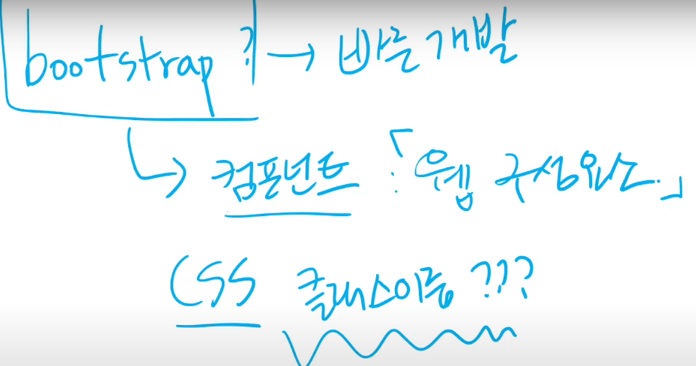 bootstrap? → 빠른개발
↳ 컴포넌트 :「웹 구성요소.」
CSS 클래스이름???